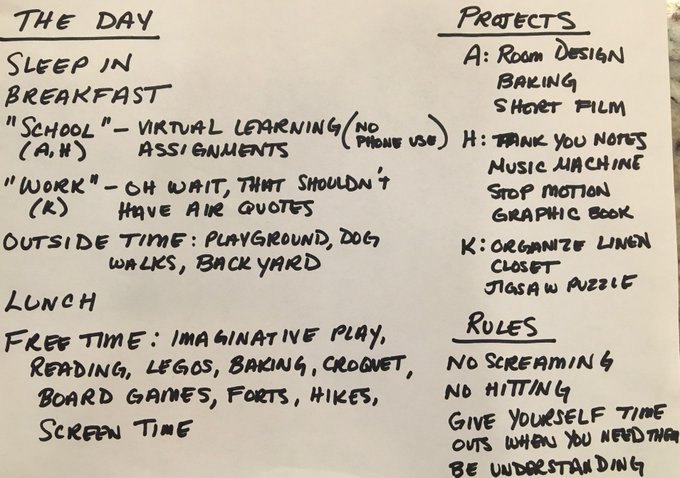 THE DAY
SLEEP IN
BREAKFAST
"SCHOOL" - VIRTUAL LEARNING (NO PHONE USE)
(A, H) ASSIGNMENTS
"WORK" - OH WAIT, THAT SHOULDN'T
(K) HAVE AIR QUOTES
OUTSIDE TIME: PLAYGROUND, DOG
WALKS, BACKYARD
LUNCH
FREE TIME: IMAGINATIVE PLAY,
READING, LEGOS, BAKING, CROQUET,
BOARD GAMES, FORTS, HIKES,
SCREEN TIME
PROJECTS
A: ROOM DESIGN
BAKING
SHORT FILM
H: THANK YOU NOTES
MUSIC MACHINE
STOP MOTION
GRAPHIC BOOK
K: ORGANIZE LINEN
CLOSET
JIGSAW PUZZLE
RULES
NO SCREAMING
NO HITTING
GIVE YOURSELF TIME
OUTS WHEN YOU NEED THEM
BE UNDERSTANDING